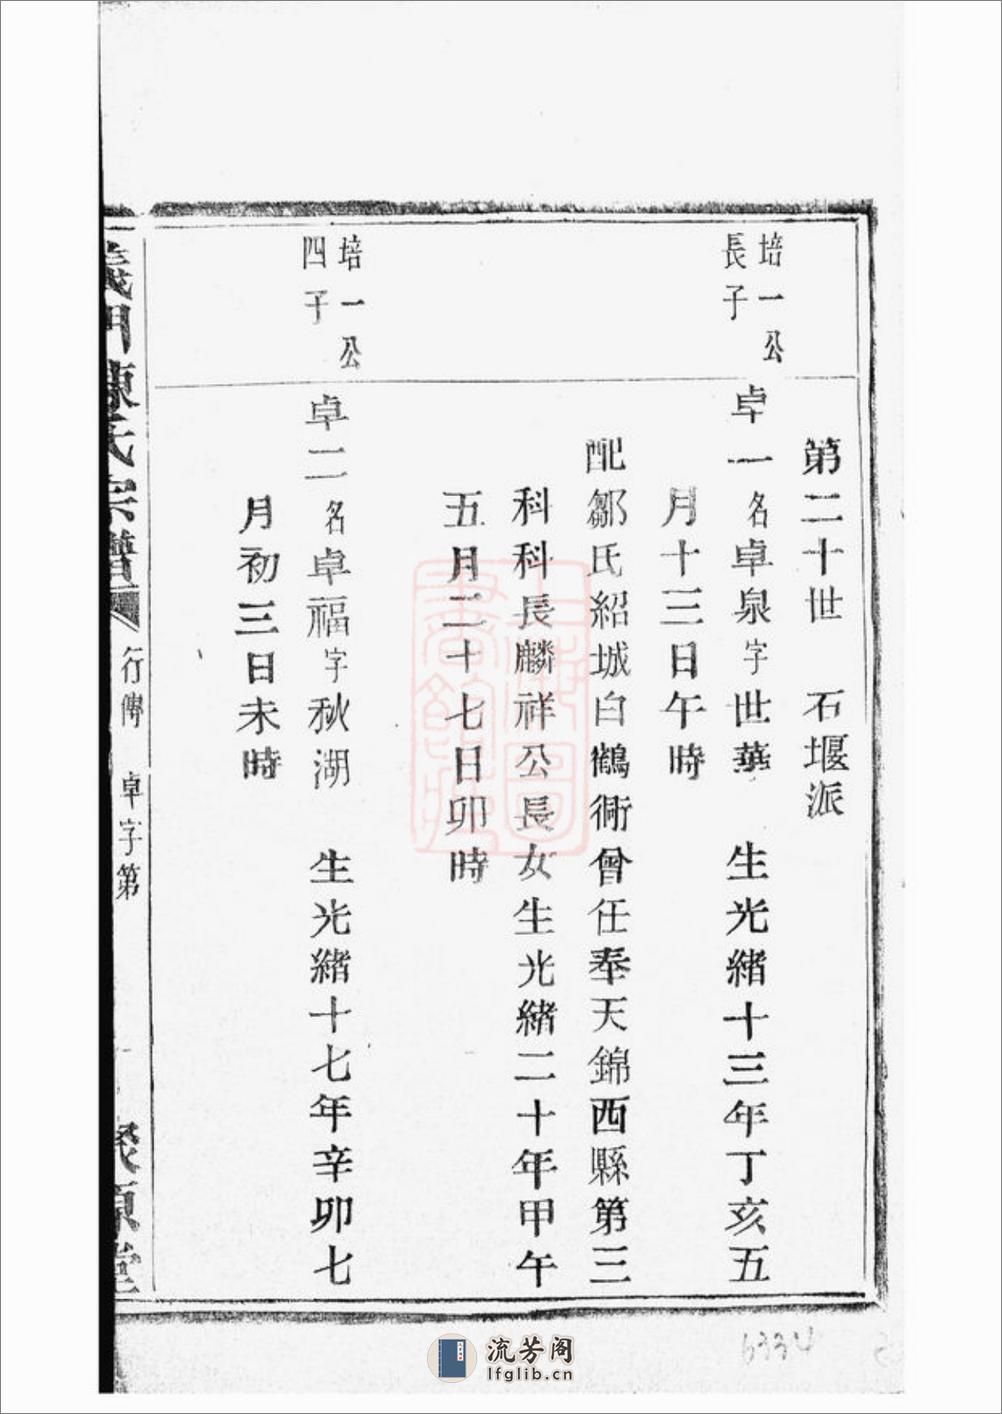 第二十世　石堰派
培一公
長子
卓一名卓泉字世華　生光緒十三年丁亥五
月十三日午時
配鄒氏紹城白鶴衕曾任奉天錦西縣第三
科科長麟祥公長女生光緒二十年甲午
五月二十七日卯時
培一公
四子
卓二名卓福字秋湖　生光緒十七年辛卯七
月初三日未時
義門陳氏宗譜　行傳　卓字第　聚原堂
6334
流芳阁
lfglib.cn